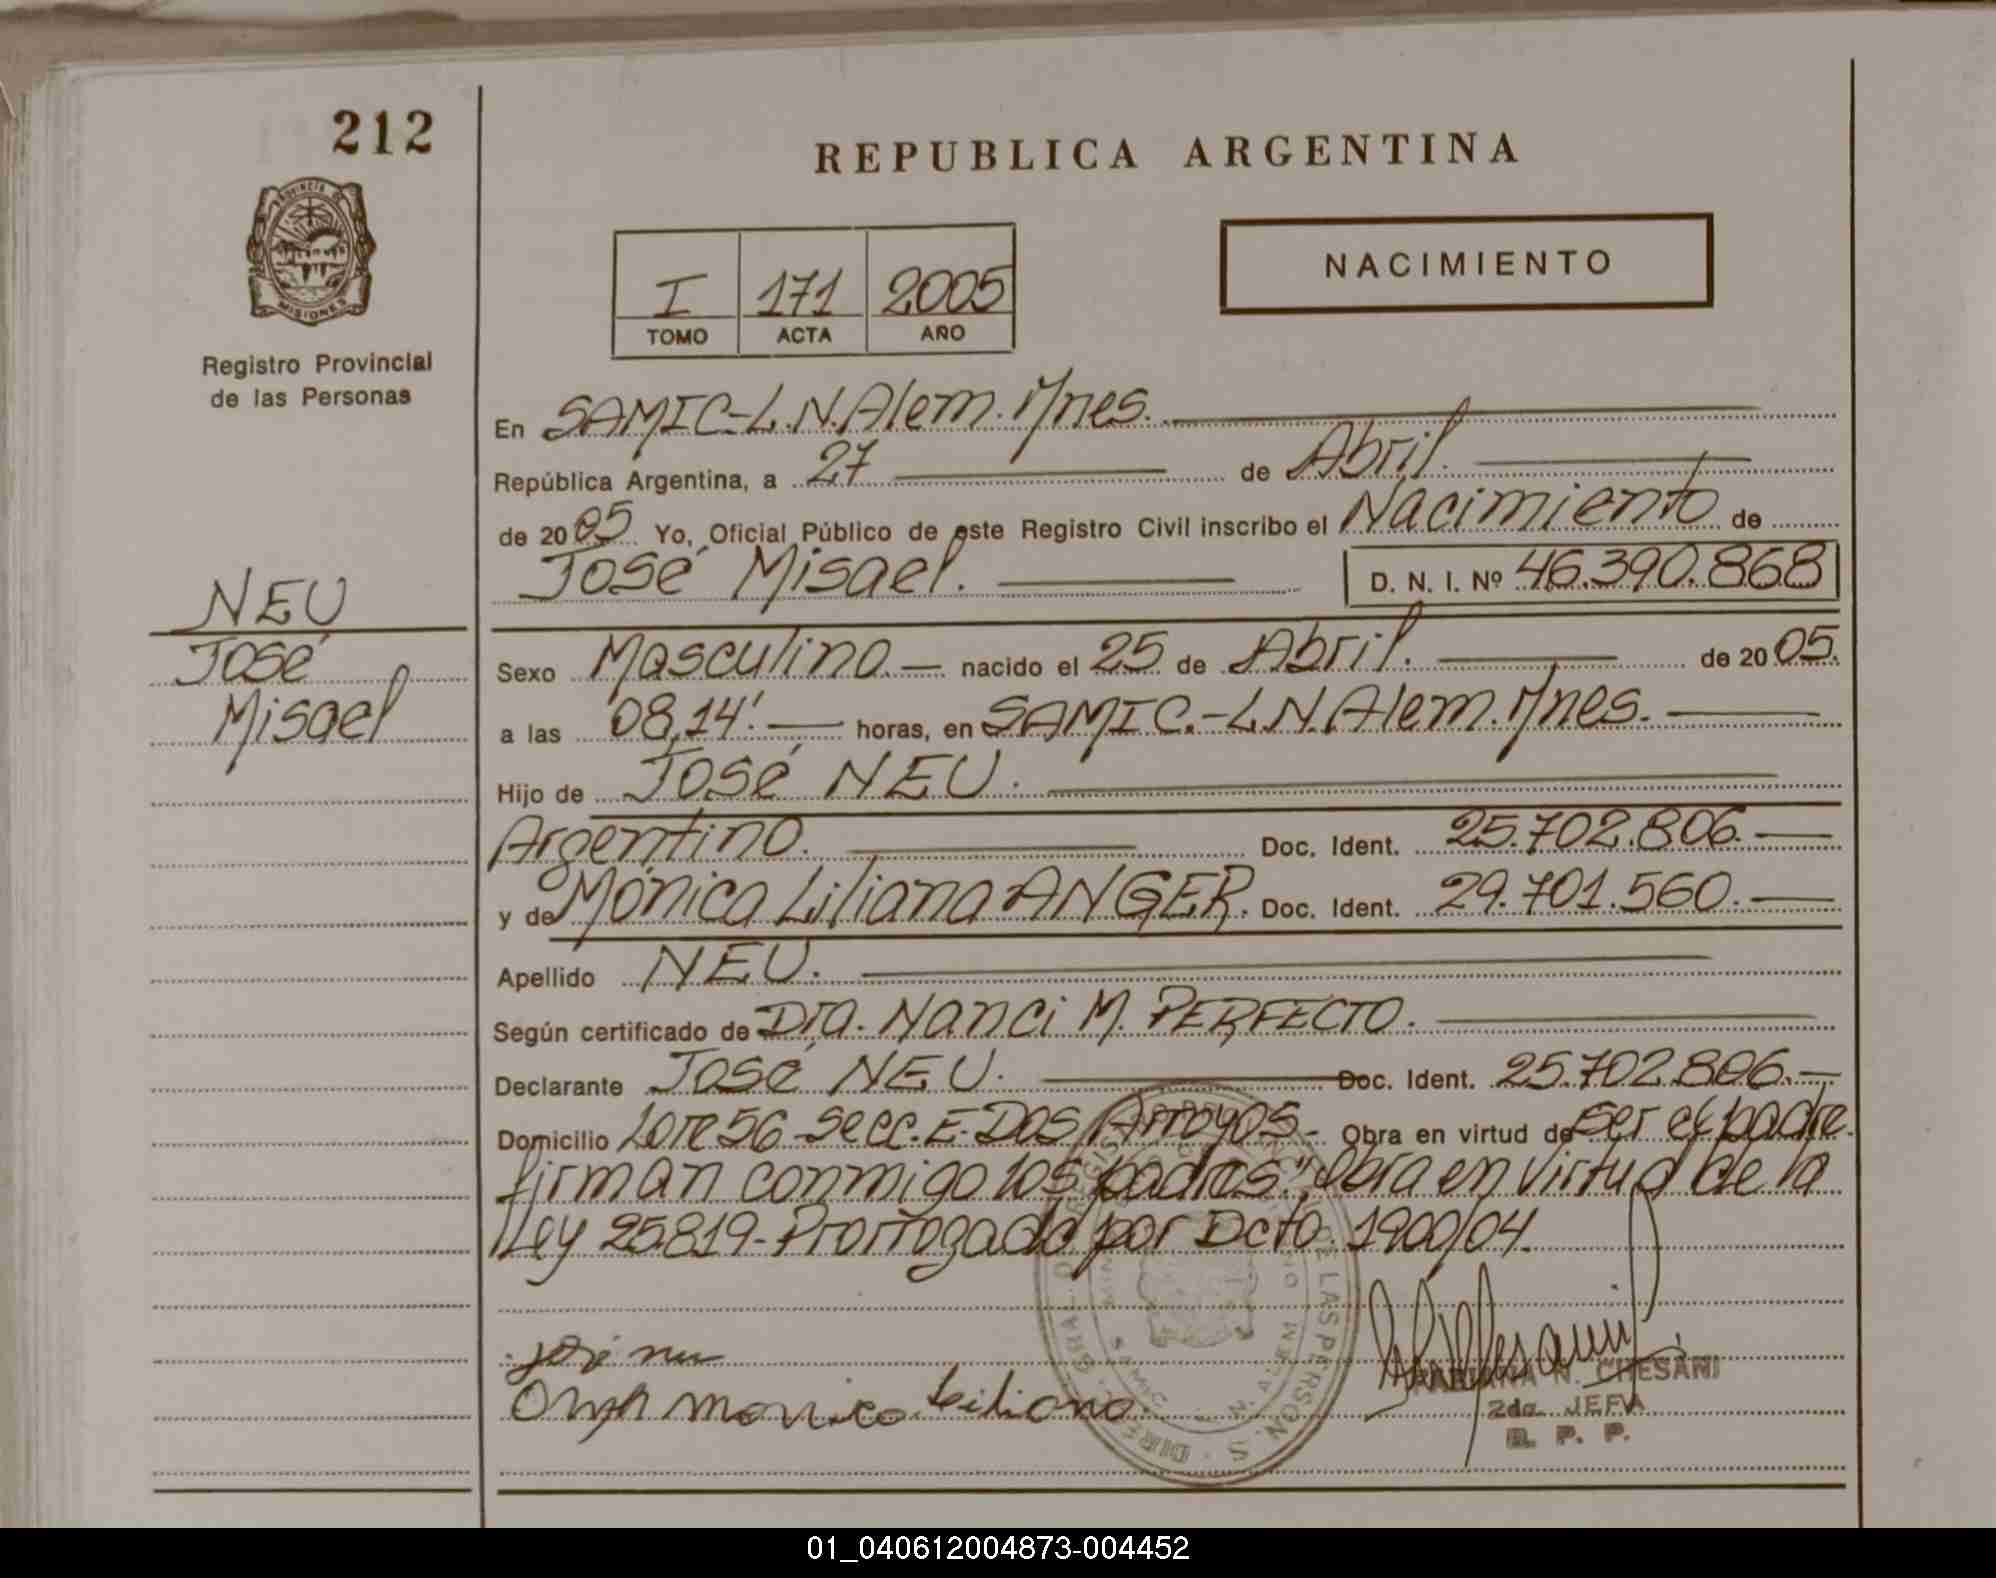 212
REPUBLICA ARGENTINA
PROVINCIA DE
MISIONES
Registro Provincial
de las Personas
NACIMIENTO
I 171 2005
TOMO ACTA AÑO
En SAMIC-L.N.Alem. Mnes.
República Argentina, a 27 de Abril.
de 2005 Yo, Oficial Público de este Registro Civil inscribo el Nacimiento de
José Misael. D. N. I. Nº 46.390.868
NEU
José
Misael
Sexo Masculino.- nacido el 25 de Abril. de 2005.
a las 08,14'. horas, en SAMIC.-L.N.Alem. Mnes.
Hijo de José NEU.
Argentino. Doc. Ident. 25.702.806.
y de Mónica Liliana ANGER. Doc. Ident. 29.701.560.
Apellido NEU.
Según certificado de Dra. Nanci M. PERFECTO.
Declarante José NEU. Doc. Ident. 25.702.806.-
Domicilio Lote 56 Secc. E- Dos Arroyos- Obra en virtud de ser el padre.
firman conmigo los padres." Obra en virtud de la
Ley 25819-Prorrogado por Dcto. 1900/04.
José neu
monica liliana
N. CHESANI
2da. JEFA
R. P. P.
01_040612004873-004452